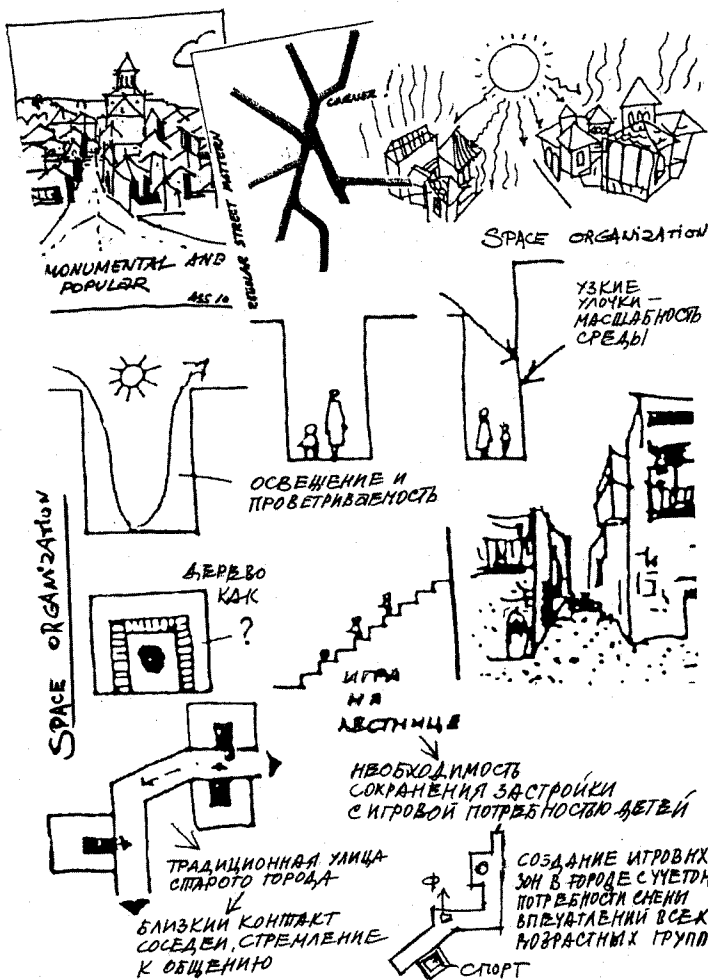 MONUMENTAL AND
POPULAR
REGULAR STREET PATTERN
CORNER
SPACE ORGANIZATION
УЗКИЕ
УЛОЧКИ —
МАСШАБНОСТЬ
СРЕДЫ
ОСВЕЩЕНИЕ И
ПРОВЕТРИВАЕМОСТЬ
SPACE ORGANIZATION
ДЕРЕВО
КАК
?
ИГРА
НА
ЛЕСТНИЦЕ
НЕОБХОДИМОСТЬ
СОХРАНЕНИЯ ЗАСТРОЙКИ
С ИГРОВОЙ ПОТРЕБНОСТЬЮ ДЕТЕЙ
ТРАДИЦИОННАЯ УЛИЦА
СТАРОГО ГОРОДА
БЛИЗКИЙ КОНТАКТ
СОСЕДЕЙ, СТРЕМЛЕНИЕ
К ОБЩЕНИЮ
Ф
СПОРТ
СОЗДАНИЕ ИГРОВЫХ
ЗОН В ГОРОДЕ С УЧЕТОМ
ПОТРЕБНОСТИ СМЕНЫ
ВПЕЧАТЛЕНИЙ ВСЕХ
ВОЗРАСТНЫХ ГРУПП